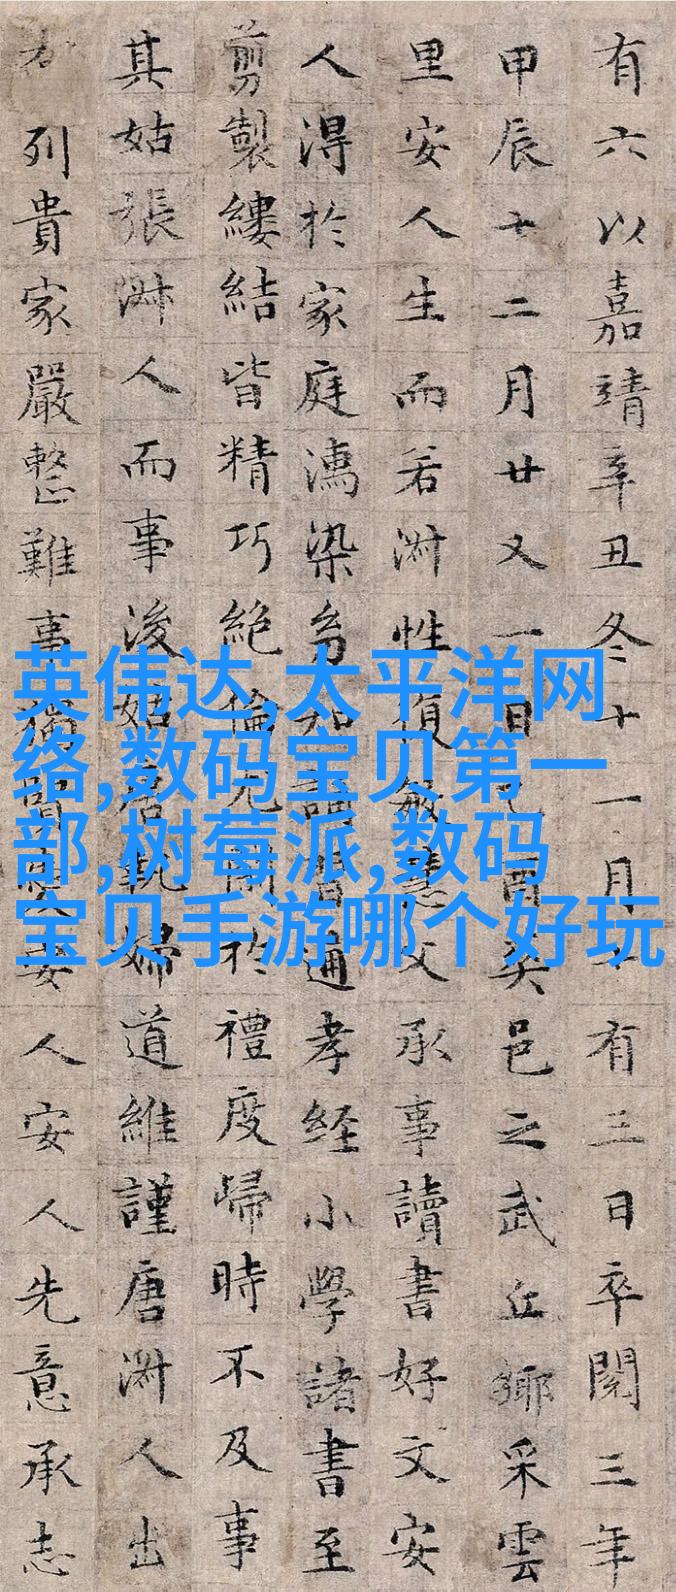 有六以嘉靖辛丑冬十一月十有三日卒閱三年
甲辰十二月廿又一日酉葬邑之武丘鄉采雲
里安人生而若淑性復敏慧父承事讀書好文安
人淂於家庭濡染皆通孝経小學諸書至
剪製縷結皆精巧絕倫尤閑於禮度歸時不及事
其姑張淑人而事後姑唐執婦道維謹唐淑人出
列貴家嚴整難事獨安人安人先意承志
英伟达,太平洋网
络,数码宝贝第一
部,树莓派,数码
宝贝手游哪个好玩